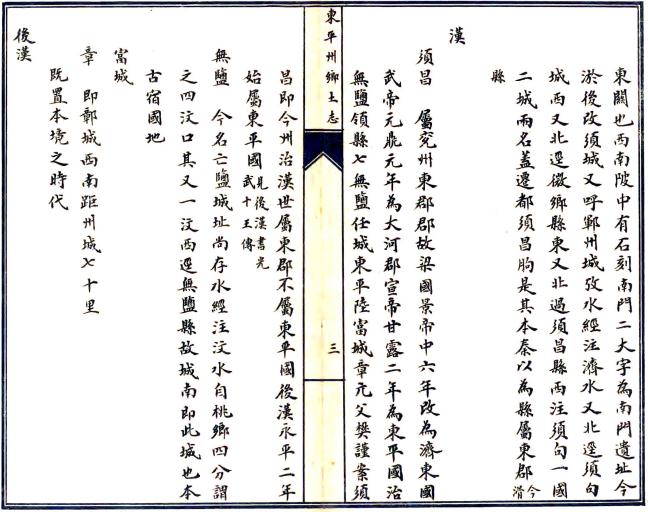 東關也西南陂中有石刻南門二大字為南門遺址今
淤後改須城又呼鄆州城攷水經注濟水又北逕須句
城西又北逕微鄉縣東又北過須昌縣西注須句一國
二城兩名蓋遷都須昌朐是其本秦以為縣屬東郡今滑
縣
漢
須昌 屬兗州東郡郡故梁國景帝中六年改為濟東國
武帝元鼎元年為大河郡宣帝甘露二年為東平國治
無鹽領縣七無鹽任城東平陸富城章亢父樊謹案須
東平州鄉土志
三
昌即今州治漢世屬東郡不屬東平國後漢永平二年
始屬東平國見後漢書光武十王傳
無鹽 今名亡鹽城址尚存水經注汶水自桃鄉四分謂
之四汶口其又一汶西逕無鹽縣故城南即此城也本
古宿國地
富城
章 即鄣城西南距州城七十里
既置本境之時代
後漢